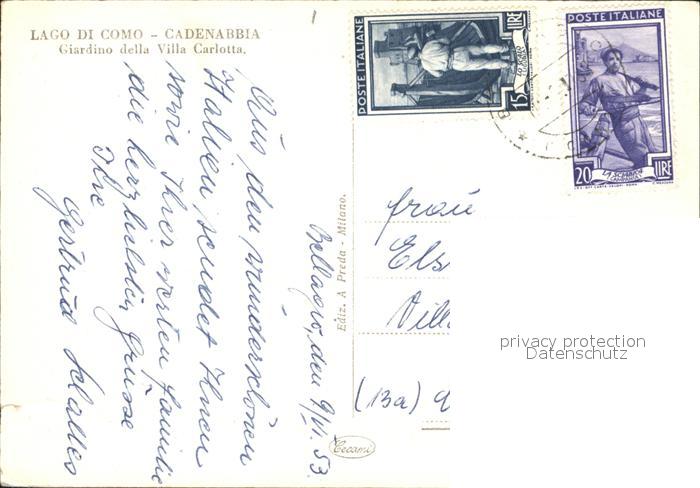 LAGO DI COMO - CADENABBIA
Giardino della Villa Carlotta.
Bellagio, den 9/VI. 53.
Aus dem wunderschönen
Italien sendet Ihnen
sowie Ihrer werten Familie
die herzlichsten Grüsse
Ihre
Gertrud
Ediz. A Preda - Milano.
Cecami
POSTE ITALIANE
15 LIRE
POSTE ITALIANE
20 LIRE
LA SCIABICA
Frau
Els
Vill
(13a)
privacy protection
Datenschutz